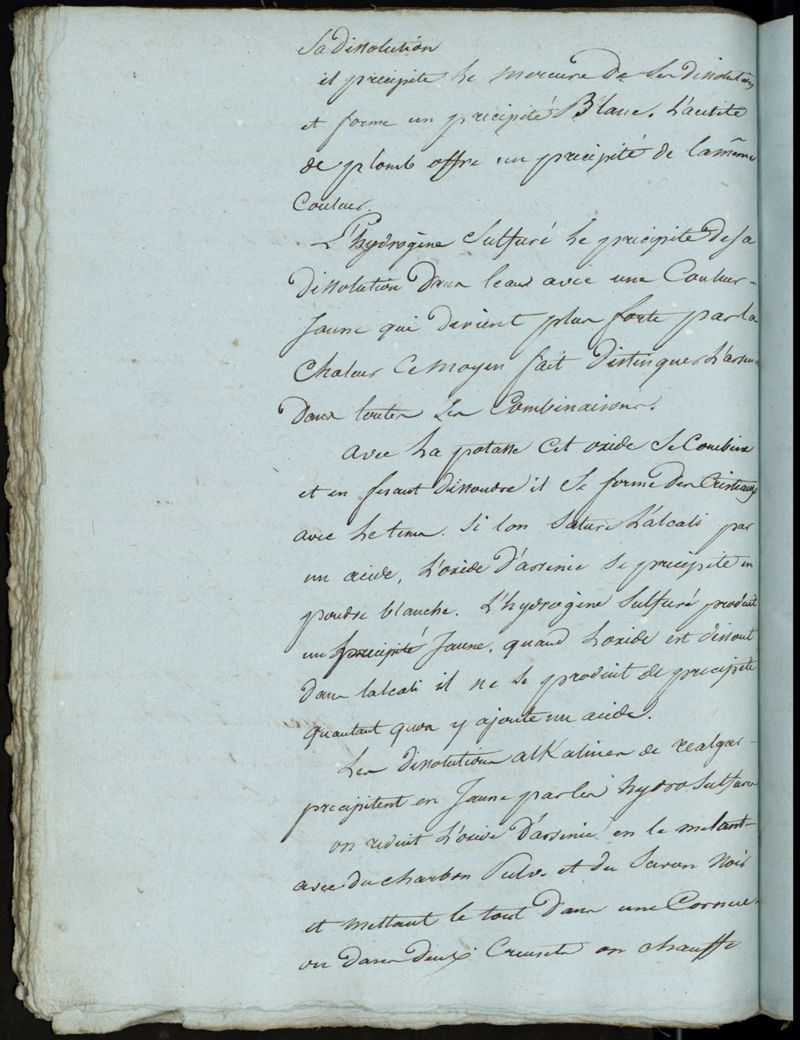 Sa dissolution
il precipite le mercure de ses dissolutions
et forme un precipité Blanc. L'acetite
de plomb offre un precipité de la même
Couleur.
L'hydrogène Sulfuré le precipite de sa
dissolution dans leau avec une Couleur
Jaune qui devient plus forte par la
Chaleur Ce moyen fait distinguer L'arsenic
dans toutes ses Combinaisons.
avec La potasse Cet oxide se Combine
et en fesant dissoudre il se forme des Cristaux
avec le tems. Si lon sature L'alcali par
un acide, L'oxide d'arsenic se precipite en
poudre blanche. L'hydrogène Sulfuré produit
un precipité Jaune, quand Loxide est dissout
dans lalcali il ne se produit de precipité
quautant quon y ajoute un acide.
Les dissolutions alkalines de realgar
precipitent en Jaune par les hydrosulfures
on reduit L'oxide d'arsenic en le melant
avec du charbon Pulv. et du Savon Noir
et mettant le tout dans une Cornue
ou dans deux Creusets on chauffe